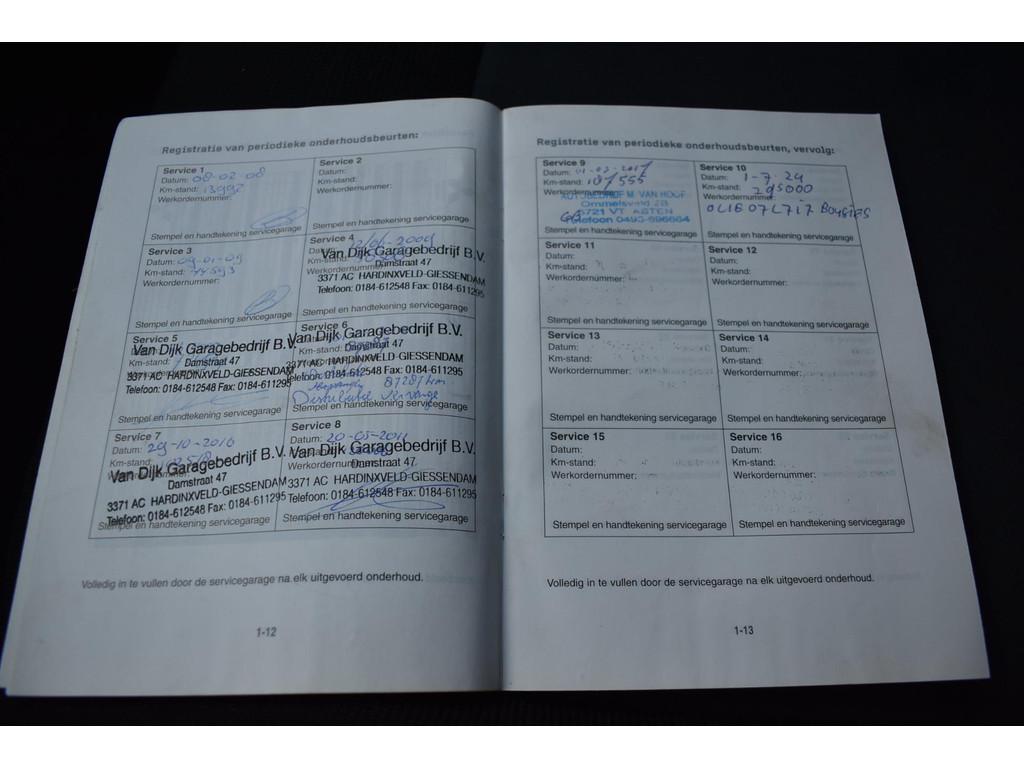 Registratie van periodieke onderhoudsbeurten:
Service 1
Datum: 08-02-08
Km-stand: 13992
Werkordernummer:
Stempel en handtekening servicegarage
Service 2
Datum:
Km-stand:
Werkordernummer:
Stempel en handtekening servicegarage
Service 3
Datum: 09-01-09
Km-stand:
Werkordernummer:
Stempel en handtekening servicegarage
Service 4
Van Dijk Garagebedrijf B.V.
Damstraat 47
3371 AC HARDINXVELD-GIESSENDAM
Telefoon: 0184-612548 Fax: 0184-611295
Stempel en handtekening servicegarage
Service 5
Van Dijk Garagebedrijf B.V.
Km-stand: Damstraat 47
3371 AC HARDINXVELD-GIESSENDAM
Telefoon: 0184-612548 Fax: 0184-611295
Stempel en handtekening servicegarage
Service 6
Van Dijk Garagebedrijf B.V.
Km-stand: Damstraat 47
3371 AC HARDINXVELD-GIESSENDAM
Telefoon: 0184-612548 Fax: 0184-611295
87287 km
Distributie
Stempel en handtekening servicegarage
Service 7
Datum: 29-10-2010
Km-stand:
Van Dijk Garagebedrijf B.V.
Damstraat 47
3371 AC HARDINXVELD-GIESSENDAM
Telefoon: 0184-612548 Fax: 0184-611295
Stempel en handtekening servicegarage
Service 8
Datum: 20-05-2011
Van Dijk Garagebedrijf B.V.
Werkordernummer: Damstraat 47
3371 AC HARDINXVELD-GIESSENDAM
Telefoon: 0184-612548 Fax: 0184-611295
Stempel en handtekening servicegarage
Volledig in te vullen door de servicegarage na elk uitgevoerd onderhoud.
1-12
Registratie van periodieke onderhoudsbeurten, vervolg:
Service 9
Datum: 01-02-2017
Km-stand: 187555
Werkordernummer:
AUTOBEDRIJF M. VAN HOOF
Ommelsveld 2B
5721 VT ASTEN
Telefoon 0493-696664
Stempel en handtekening servicegarage
Service 10
Datum: 1-7-24
Km-stand: 295000
Werkordernummer:
Stempel en handtekening servicegarage
Service 11
Datum:
Km-stand:
Werkordernummer:
Stempel en handtekening servicegarage
Service 12
Datum:
Km-stand:
Werkordernummer:
Stempel en handtekening servicegarage
Service 13
Datum:
Km-stand:
Werkordernummer:
Stempel en handtekening servicegarage
Service 14
Datum:
Km-stand:
Werkordernummer:
Stempel en handtekening servicegarage
Service 15
Datum:
Km-stand:
Werkordernummer:
Stempel en handtekening servicegarage
Service 16
Datum:
Km-stand:
Werkordernummer:
Stempel en handtekening servicegarage
Volledig in te vullen door de servicegarage na elk uitgevoerd onderhoud.
1-13